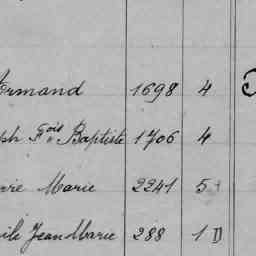 Armand 1698 4
ph Fois Baptiste 1706 4
rre Marie 2241 5
ile Jean Marie 288 1 D